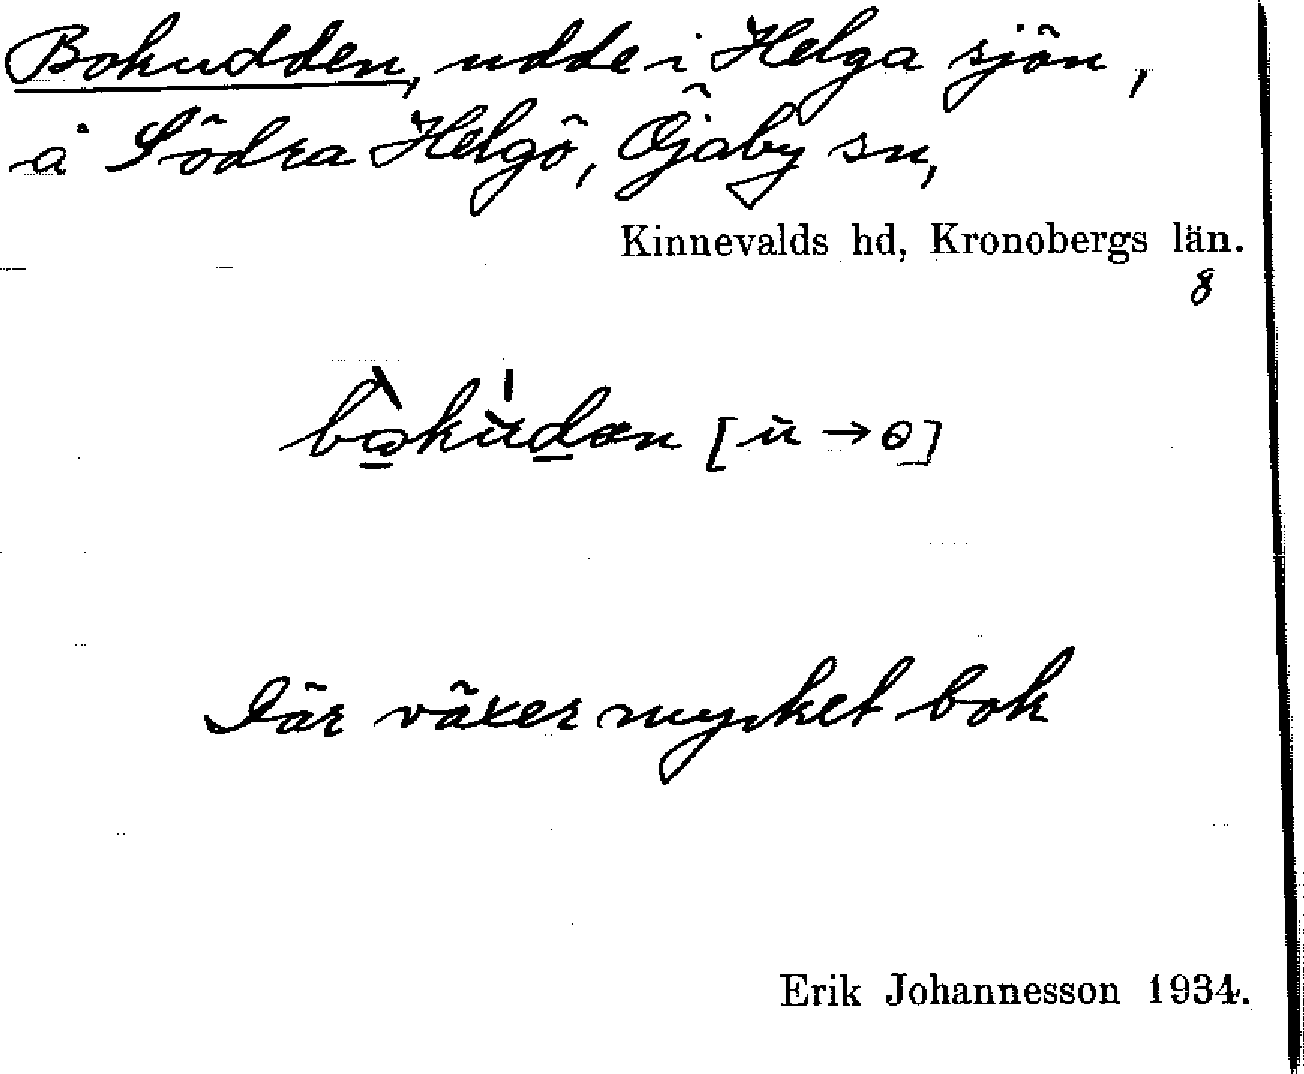 Bokudden, udde i Helga sjön,
å Södra Helgö, Öjaby sn,
Kinnevalds hd, Kronobergs län.
8
[u → ө]
Där växer mycket bok
Erik Johannesson 1934.